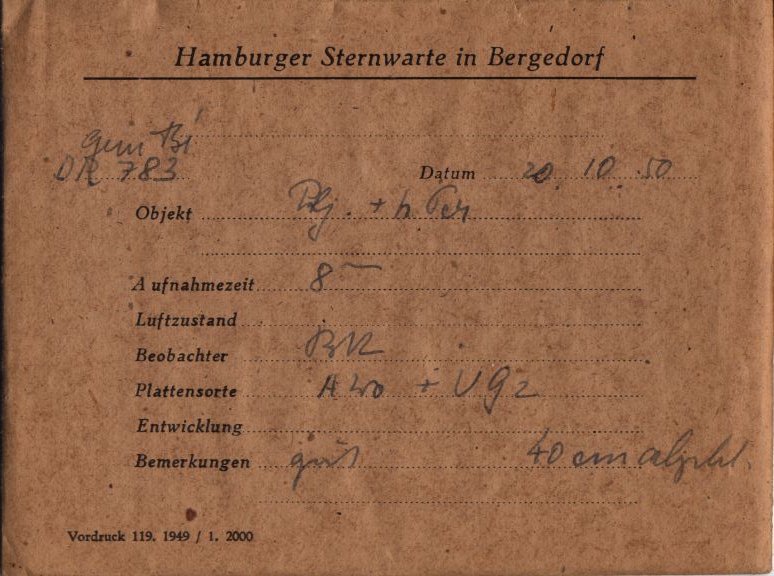 Hamburger Sternwarte in Bergedorf
gem Bi
DR 783 Datum 20. 10. 50
Objekt + h Per
Aufnahmezeit 8
Luftzustand
Beobachter
Plattensorte + UG2
Entwicklung
Bemerkungen gut 40 cm
Vordruck 119. 1949 / 1. 2000